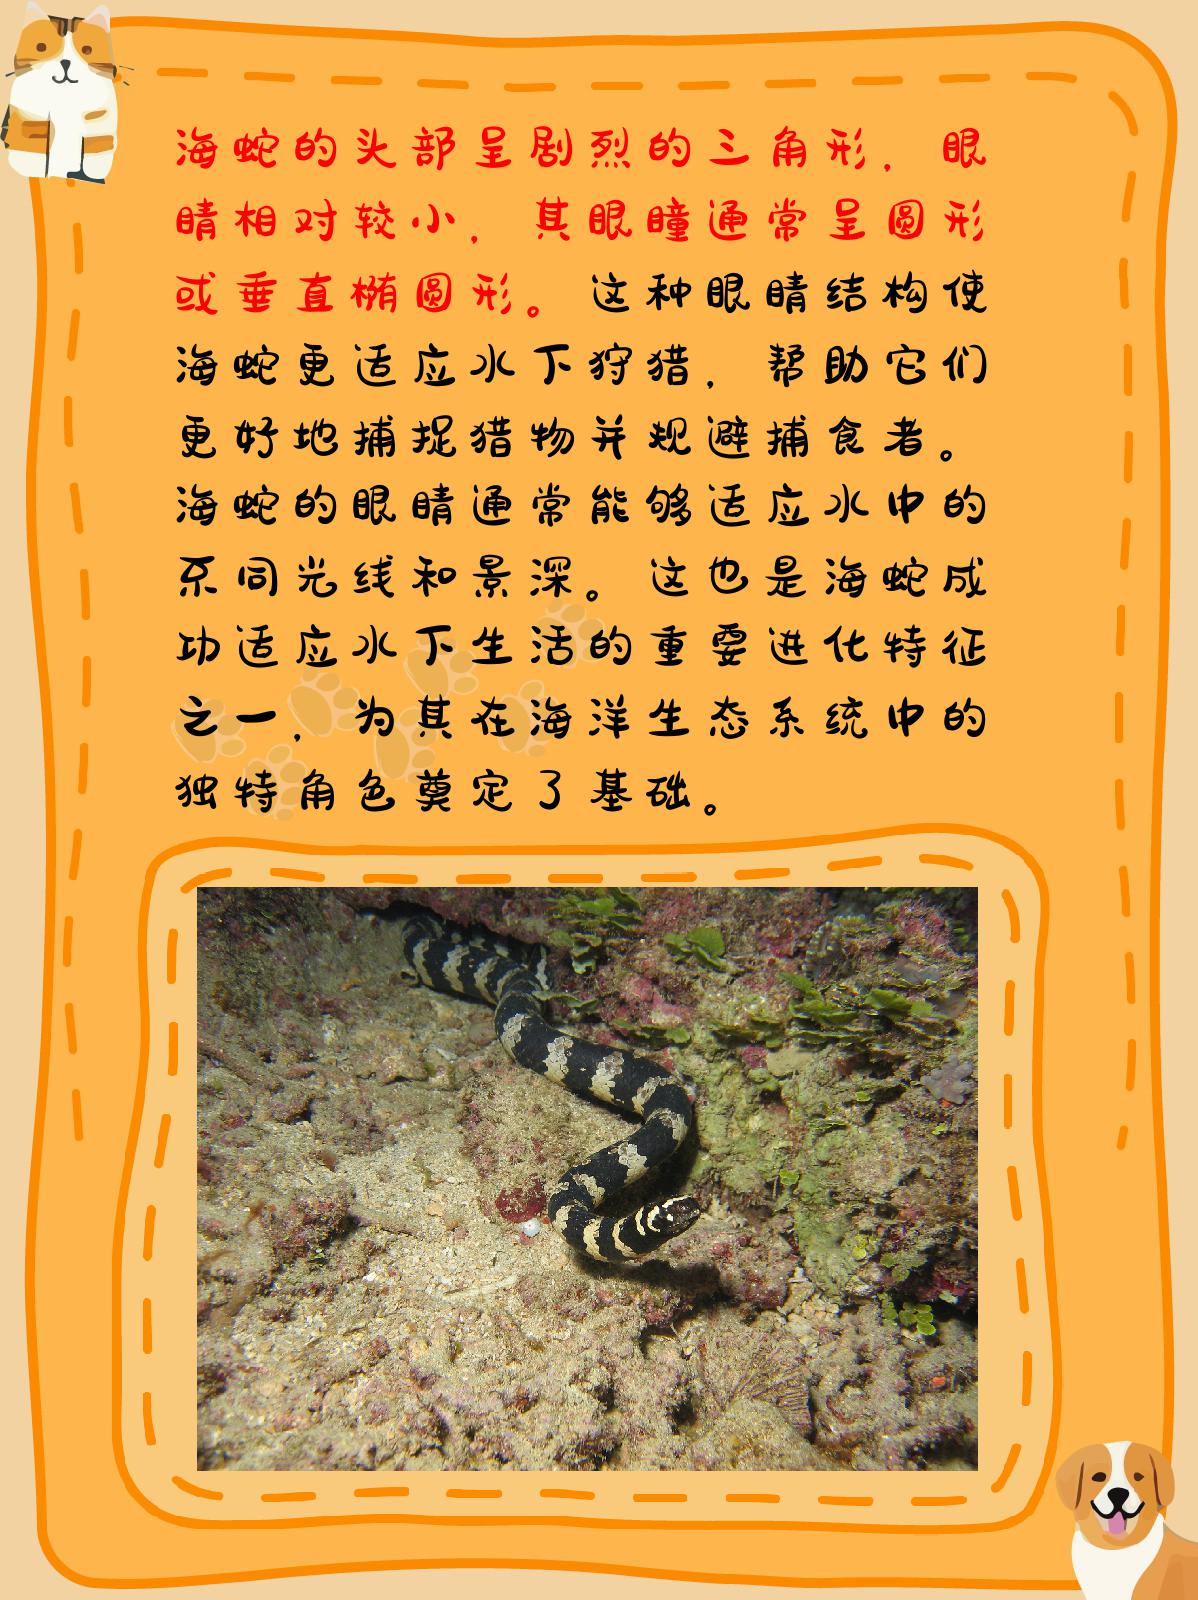 海蛇的头部呈剧烈的三角形，眼
睛相对较小，其眼瞳通常呈圆形
或垂直椭圆形。这种眼睛结构使
海蛇更适应水下狩猎，帮助它们
更好地捕捉猎物并规避捕食者。
海蛇的眼睛通常能够适应水中的
不同光线和景深。这也是海蛇成
功适应水下生活的重要进化特征
之一，为其在海洋生态系统中的
独特角色奠定了基础。